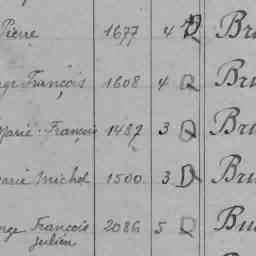 Pierre 1677 4 D Bru
François 1608 4 Q Bru
Marie François 1487 3 Q Bru
Marie Michel 1500 3 D Bru
François Julien 2086 5 Q Bu